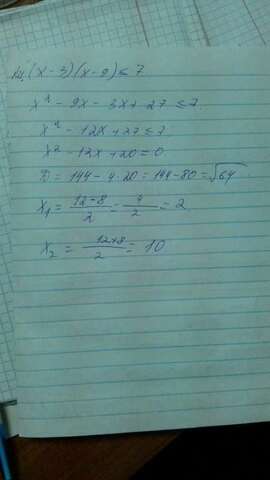 (x-3)(x-9)≤7
x²-9x-3x+27≤7
x²-12x+27≤7
x²-12x+20=0
D=144-4·20=144-80=√64
x₁=12-8/2=4/2=2
x₂=12+8/2=10